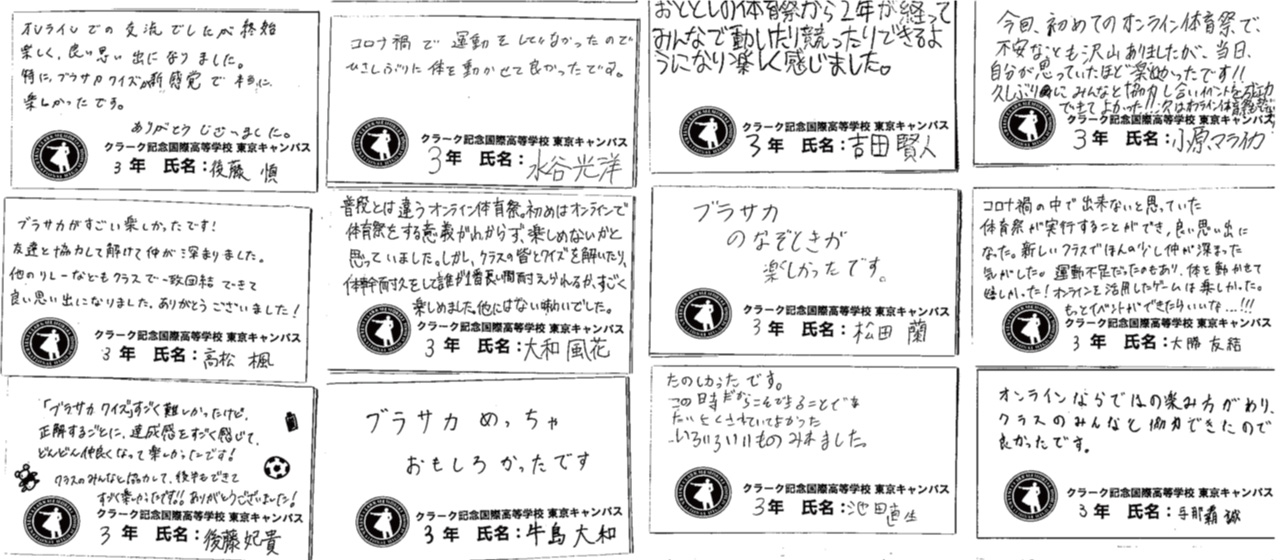 オンラインでの交流でしたが終始
楽しく、良い思い出になりました。
特に、ブラサカクイズが新感覚で本当に
楽しかったです。
ありがとうございました。
クラーク記念国際高等学校 東京キャンパス
3年 氏名：後藤 慎
コロナ禍で運動をしていなかったので
ひさしぶりに体を動かせて良かったです。
クラーク記念国際高等学校 東京キャンパス
3年 氏名：水谷光洋
おととしの体育祭から2年が経って
みんなで動いたり競ったりできるよ
うになり楽しく感じました。
クラーク記念国際高等学校 東京キャンパス
3年 氏名：吉田賢人
今回、初めてのオンライン体育祭で、
不安なことも沢山ありましたが、当日、
自分が思っていたほど楽しかったです!!
久しぶりにみんなと協力し合いイベントを成功
できてよかった!!次はオンライン体育祭
クラーク記念国際高等学校 東京キャンパス
3年 氏名：小原マライカ
ブラサカがすごい楽しかったです!
友達と協力して解けて仲が深まりました。
他のリレーなどもクラスで一致団結できて
良い思い出になりました。ありがとうございました!
クラーク記念国際高等学校 東京キャンパス
3年 氏名：高松 楓
普段とは違うオンライン体育祭。初めはオンラインで
体育祭をする意義がわからず、楽しめないかと
思っていました。しかし、クラスの皆とクイズを解いたり、
体幹耐久をして誰が1番長い間耐えられるか、すごく
楽しめました。他にはない味わいでした。
クラーク記念国際高等学校 東京キャンパス
3年 氏名：大和風花
ブラサカ
のなぞときが
楽しかったです。
クラーク記念国際高等学校 東京キャンパス
3年 氏名：松田 蘭
コロナ禍の中で出来ないと思っていた
体育祭が実行することができ、良い思い出に
なった。新しいクラスでほんの少し仲が深まった
気がした。運動不足だったのもあり、体を動かせて
嬉しかった!オンラインを活用したゲームは楽しかった。
もっとイベントができたらいいな...!!!
クラーク記念国際高等学校 東京キャンパス
3年 氏名：大勝友結
「ブラサカクイズ」すごく難しかったけど、
正解するごとに、達成感をすごく感じて、
どんどん仲良くなって楽しかったです!
クラスのみんなと協力して、後半もできて
すごく楽しかったです!!ありがとうございました!
クラーク記念国際高等学校 東京キャンパス
3年 氏名：後藤妃貴
ブラサカめっちゃ
おもしろかったです
クラーク記念国際高等学校 東京キャンパス
3年 氏名：牛島大和
たのしかったです。
この時だからこそできることでま
よかった
いろいろいいものみれました。
クラーク記念国際高等学校 東京キャンパス
3年 氏名：池田直生
オンラインならではの楽み方があり、
クラスのみんなと協力できたので
良かったです。
クラーク記念国際高等学校 東京キャンパス
3年 氏名：与那覇 誠